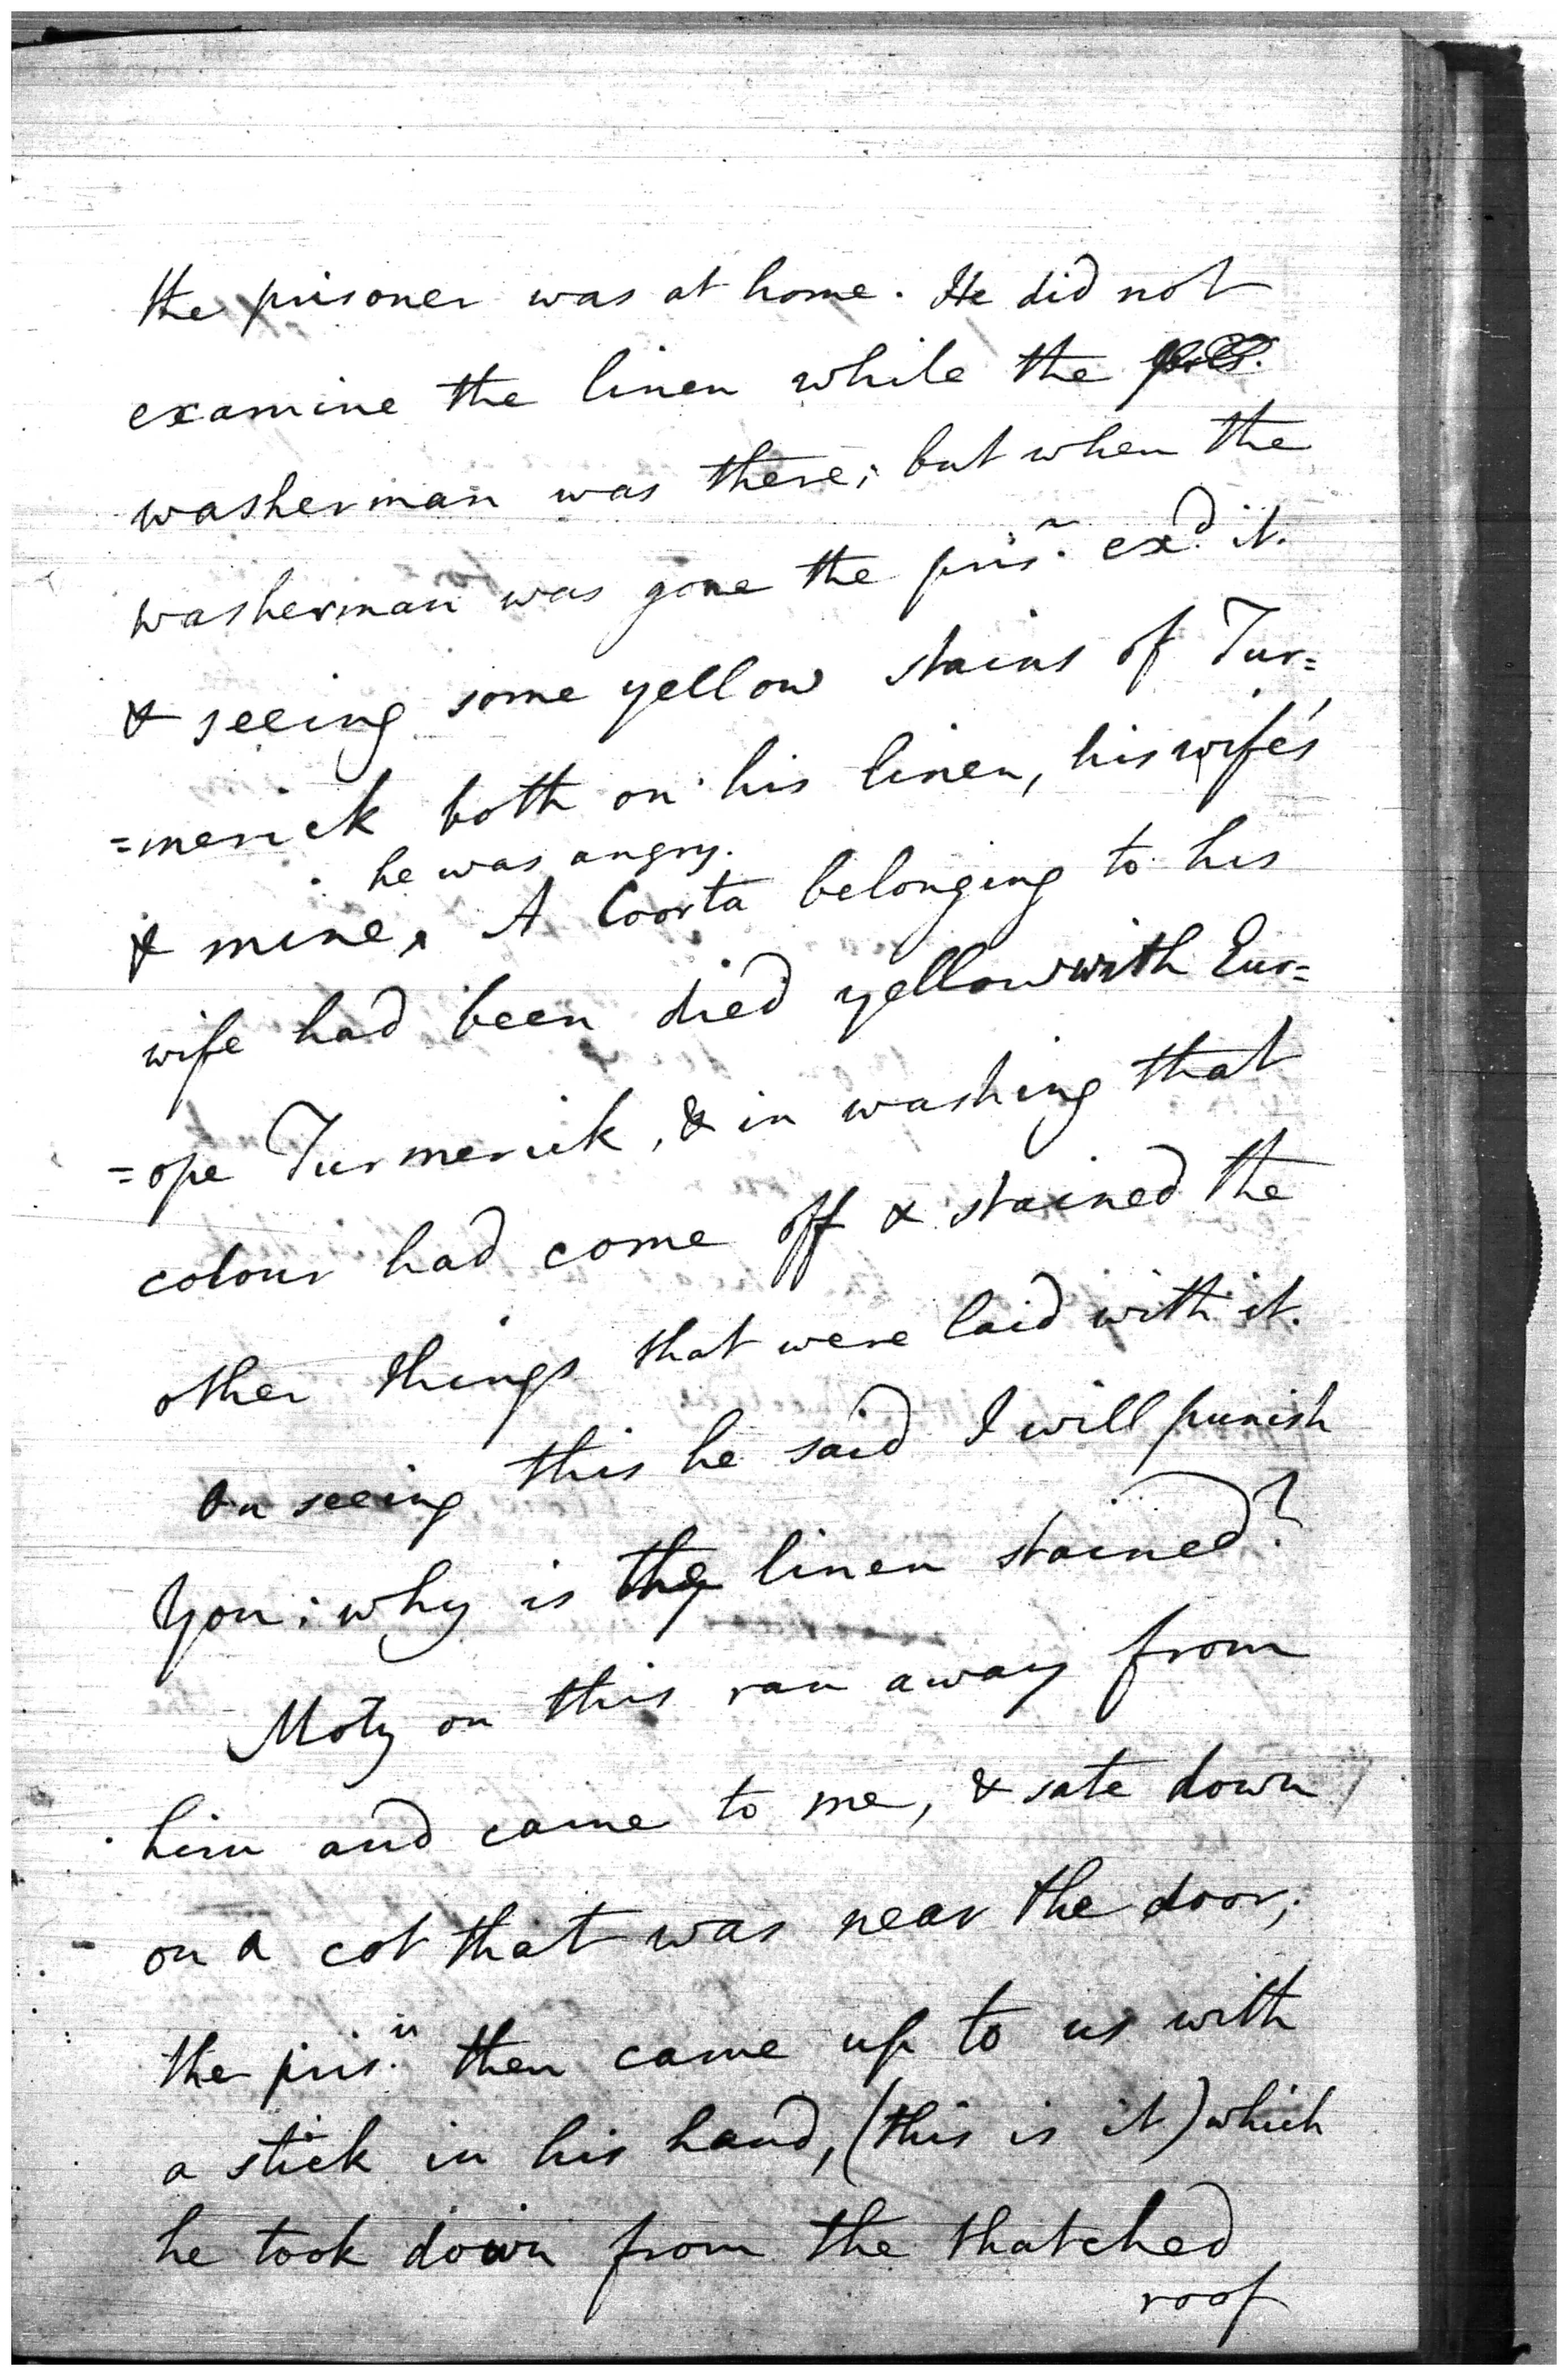 the prisoner was at home. He did not
examine the linen while the
washerman was there; but when the
washerman was gone the pris.^n ex.^d it.
& seeing some yellow stains of Tur=
=merick both on his linen, his wife's
he was angry.
& mine, A Coorta belonging to his
wife had been died yellow with Eur=
=ope Turmerick, & in washing that
colour had come off & stained the
other things that were laid with it.
On seeing this he said I will punish
you; why is the linen stained?
Moty on this ran away from
him and came to me, & sate down
on a cot that was near the door;
the pris.^n then came up to us with
a stick in his hand, (this is it) which
he took down from the thatched
roof